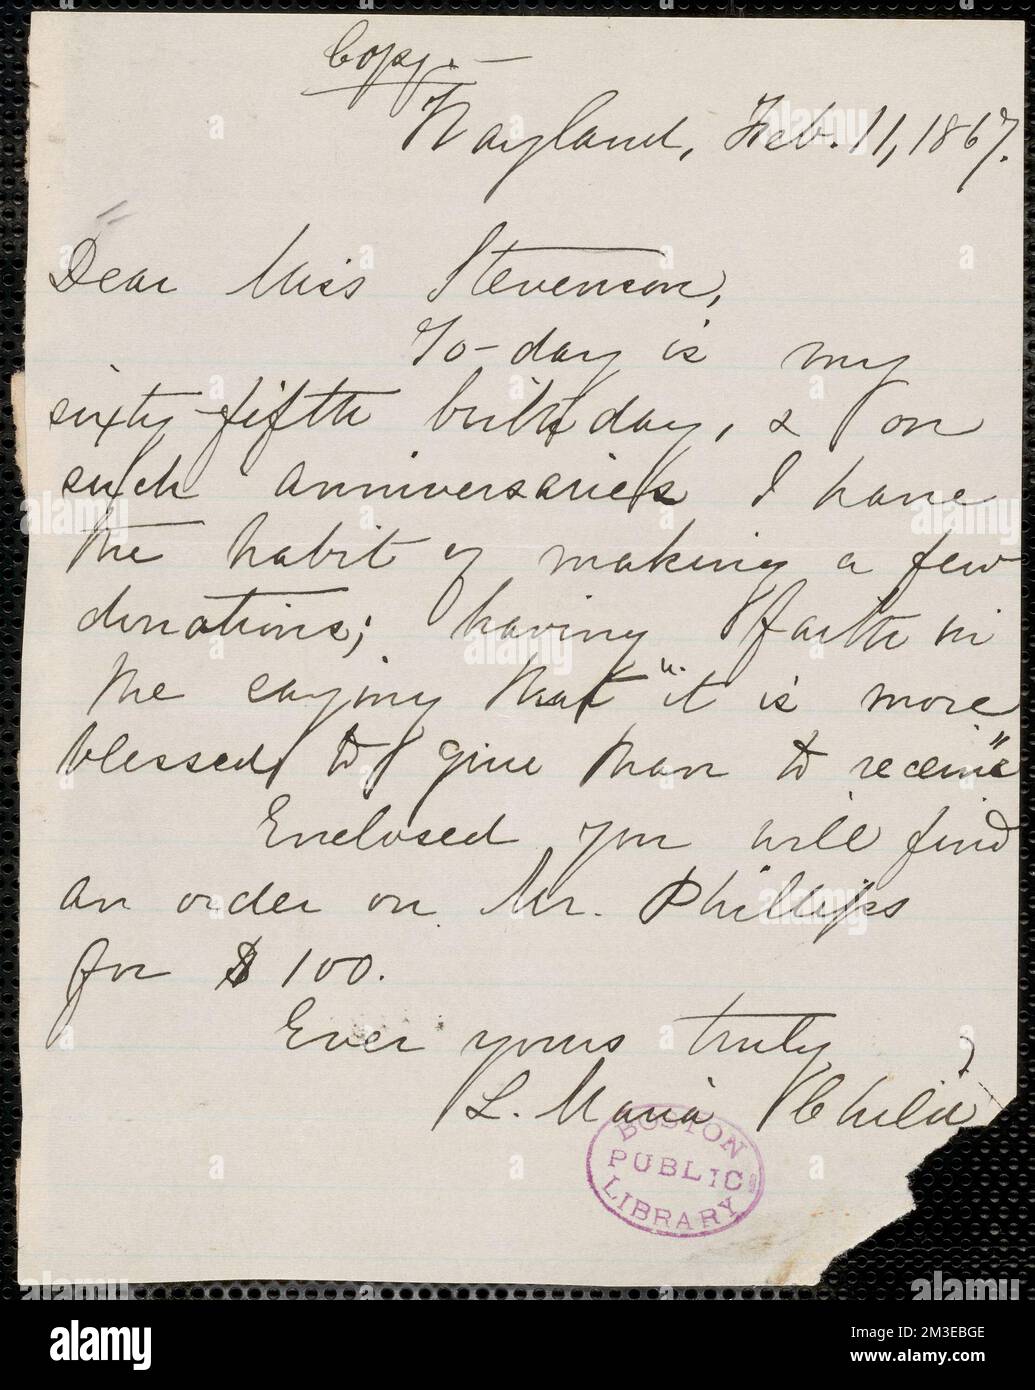 Copy.—
Wayland, Feb. 11, 1867.
Dear Miss Stevenson,
To-day is my
sixty-fifth birthday, & on
such anniversaries I have
the habit of making a few
donations; having faith in
the saying that "it is more
blessed to give than to receive"
Enclosed you will find
an order on Mr. Phillips
for $100.
Ever yours truly,
L. Maria Child
BOSTON
PUBLIC
LIBRARY
alamy
Image ID: 2M3EBGE
www.alamy.com